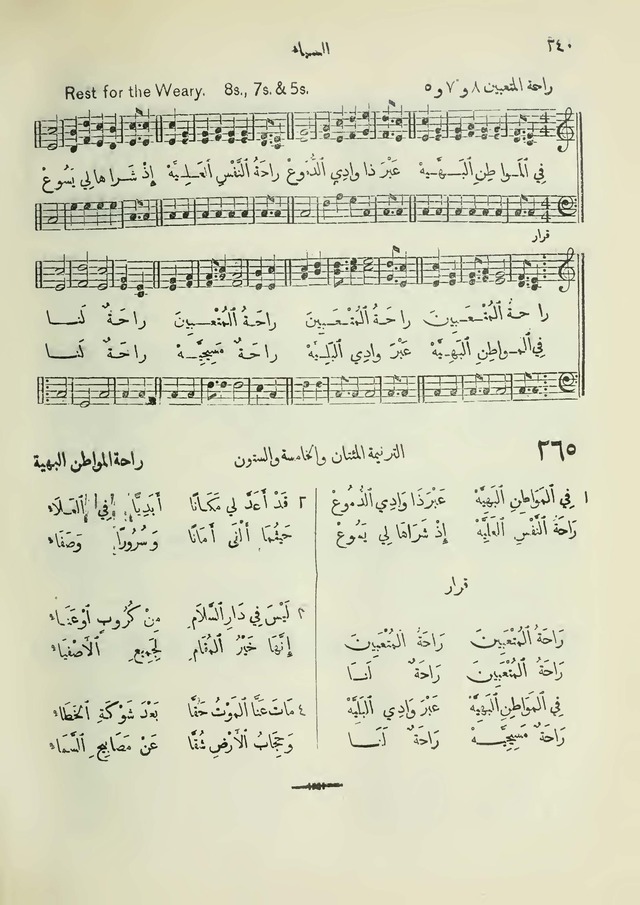 ٣٤٠
السماء
Rest for the Weary. 8s., 7s. & 5s.
راحة المتعبين ٨ و ٧ و ٥
فِي الْمَواطِنِ الْبَـهِـيَّهْ عَبْرَ ذَا وَادِي الدُّمُوعْ رَاحَةُ النَّفْسِ الْعَـلِـيَّهْ إِذْ شَـرَاهَا لِي يَسُوعْ
قرار
رَاحَـةُ الْمُتْـعَـبِـينَ رَاحَـةُ الْمُتْـعَـبِـينَ رَاحَـةُ الْمُتْـعَـبِـينَ رَاحَـةٌ لَنَـا
فِي الْمَـوَاطِنِ الْبَهِـيَّهْ عَبْرَ وَادِي الْبَلِيَّهْ رَاحَـةٌ مَسِيحِيَّـهْ رَاحَـةٌ لَنَـا
٢٦٥
الترنيمة المئتان والخامسة والستون
راحة المواطن البهية
١ فِي الْمَوَاطِنِ الْبَهِيَّهْ عَبْرَ ذَا وَادِي الدُّمُوعْ
رَاحَةُ النَّفْسِ الْعَلِيَّهْ إِذْ شَرَاهَا لِي يَسُوعْ
قرار
رَاحَةُ الْمُتْعَبِينَ رَاحَةُ الْمُتْعَبِينَ
رَاحَةُ الْمُتْعَبِينَ رَاحَةٌ لَنَـا
فِي الْمَوَاطِنِ الْبَهِيَّهْ عَبْرَ وَادِي الْبَلِيَّهْ
رَاحَةٌ مَسِيحِيَّـهْ رَاحَةٌ لَنَـا
٢ قَدْ أَعَدَّ لِي مَكَانًا أَبَدِيًّا فِي الْعَلَاءْ
حَيْثُمَا أَلْقَى أَمَانًا وَسُرُورًا وَصَفَاءْ
٣ لَيْسَ فِي دَارِ السَّلَامِ مِنْ كُرُوبٍ أَوْ عَنَاءْ
إِنَّهَا خَيْرُ الْمُقَامِ لِجَمِيعِ الْأَصْفِيَاءْ
٤ مَاتَ عَنَّا الْمَوْتُ حَقًّا بَعْدَ شَوْكَةِ الْخَطَاءْ
وَحِجَابُ الْأَرْضِ شُقَّا عَنْ مَصَابِيحِ السَّمَاءْ